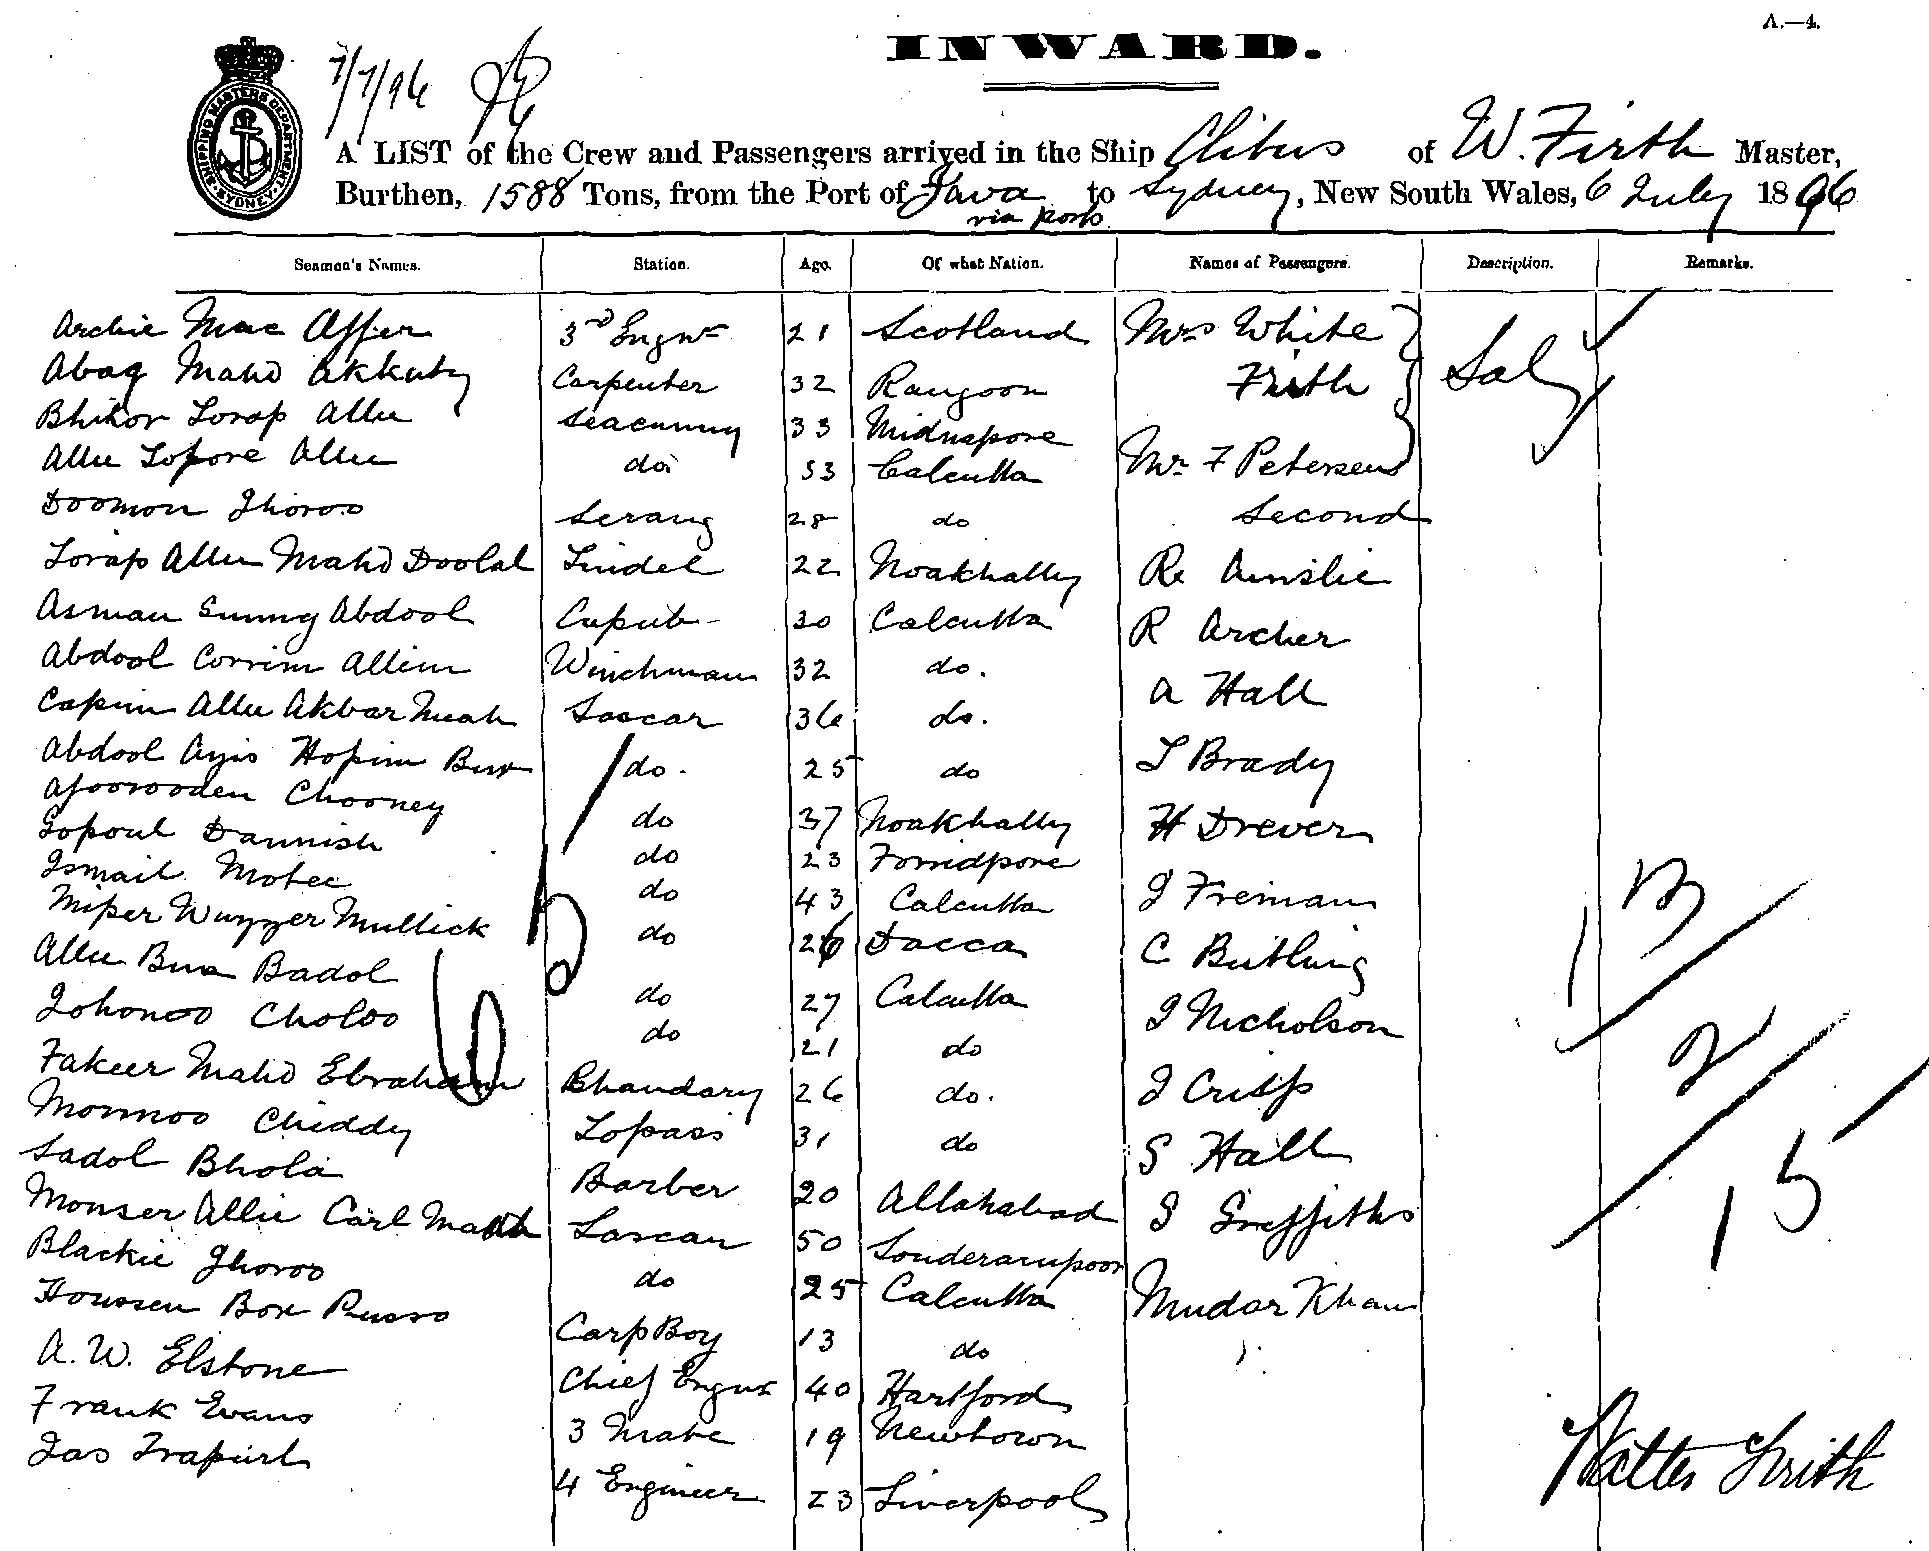 A.—4.
INWARD.
SHIPPING MASTERS DEPARTMENT SYDNEY
7/7/96
A LIST of the Crew and Passengers arrived in the Ship Clitus of W. Firth Master,
Burthen, 1588 Tons, from the Port of Java to Sydney, New South Wales, 6 July 1896
via ports
Seamen's Names. Station. Age. Of what Nation. Names of Passengers. Description. Remarks.
Archie Mac Affer 3rd Engnr 21 Scotland Mrs White
Abag Mahd Akkuty Carpenter 32 Rangoon Frith Sal
Bhikor Torap Allu Seacunny 33 Midnapore
Allu Topore Allu do 33 Calcutta Mr F Petersen
Doomon Jhoroo Serang 28 do Second
Torap Allu Mahd Doolal Tindel 22 Noakhally R Ainslie
Asman Sunny Abdool 30 Calcutta R Archer
Abdool Corrim Allim Winchman 32 do. A Hall
Capim Allu Akbar Meah Lascar 36 do.
Abdool Ayis Hopim Bux do. 25 do T Brady
Afoorooden Chooney do 37 Noakhally H Drever
Gopoul Dannish do 23 Forridpore
Ismail Motee do 43 Calcutta J Freiman
Miper Wuzzer Mullick do 26 Dacca C Butling
Allu Bux Badol do 27 Calcutta
Johonoo Choloo do 21 do J Nicholson
Fakeer Mahd Ebraham Bhandary 26 do. J Crisp
Monnoo Chiddy Topass 31 do S Hall
Sadol Bhola Barber 20 Allahabad J Griffiths
Monser Allie Carl Lascar 50 Souderampoor
Blackie Jhoroo do 25 Calcutta Mudar Khan
Houssen Box Russo Carp Boy 13 do
A. W. Elstone Chief Engnr 40 Hartford
Frank Evans 3 Mate 19 Newtown
Jas 4 Engineer 23 Liverpool
13
2
15
Walter Frith